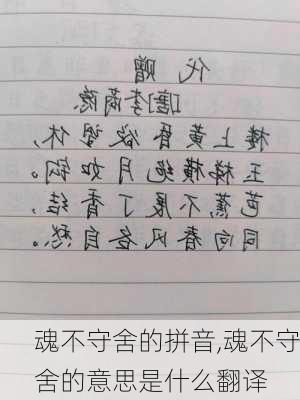 代赠
[唐]李商隐
楼上黄昏欲望休,
玉梯横绝月如钩。
芭蕉不展丁香结,
同向春风各自愁。
魂不守舍的拼音,魂不守
舍的意思是什么翻译